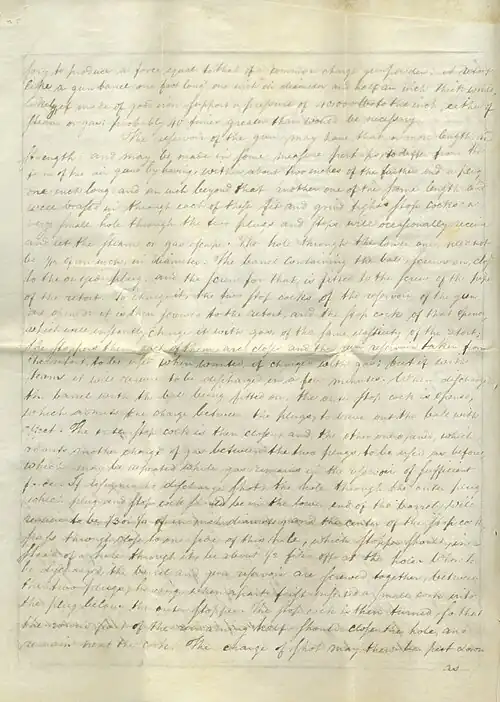 to produce a force equal to that of a common charge gunpowder
take a gun barrel one foot long one inch in diameter and half an inch thick would
if made of good iron support a pressure of 40000 lbs to the inch either of
steam or gas probably 40 times greater than would be necessary
The reservoir of the gun may have that or more length &
strength and may be made in some measure perhaps to differ from the
form of the air guns by having within about two inches of the further end a plug
one inch long and an inch beyond that another one of the same length and
well in through each of these fit and grind tight stop cocks a
very small hole through the two plugs and stops will occasionally receive
and let the steam or gas escape. The hole through the lower one need not
be of an inch in diameter. The barrel containing the ball screws on close
to the outer plug, and the screw for that, is fitted to the screw of the pipe
of the retort. To charge it, the two stop cocks of the reservoir of the gun
are opened it is then screwed to the retort, and the stop cock of that opened
which will instantly charge it with gas of the same elasticity of the retort,
the stoppers then each of them are closed and the reservoir taken from
that retort, to be used when wanted if charged with gas; but if with
steam it will require to be discharged in a few minutes. When discharged
the barrel with the ball being fitted on, the outer stop cock is opened,
which admits the charge between the plugs to have out the ball with
effect. The outer stop cock is then closed and the other one opened, which
admits another charge of gas between the two plugs to be used as before
which may be repeated while gas remains in the reservoir of sufficient
force. If designed to discharge shot, the hole through the outer plug
which plug and stop cock should be in the lower end of the barrel, will
require to be of an inch diameter and the center of the stop cock
pass through close to one side of this hole, which stopper should, in
place of a hole through it, be about 1/2 filed off at the hole. When to
be discharged the barrel and reservoir are screwed together, between
the two plugs, being taken apart first insert a small cork into
the plug below the outer stopper. The stop cock is then turned so that
the round part of the remaining half should close the hole, and
remain near the cork. The charge of shot may then be put down
as